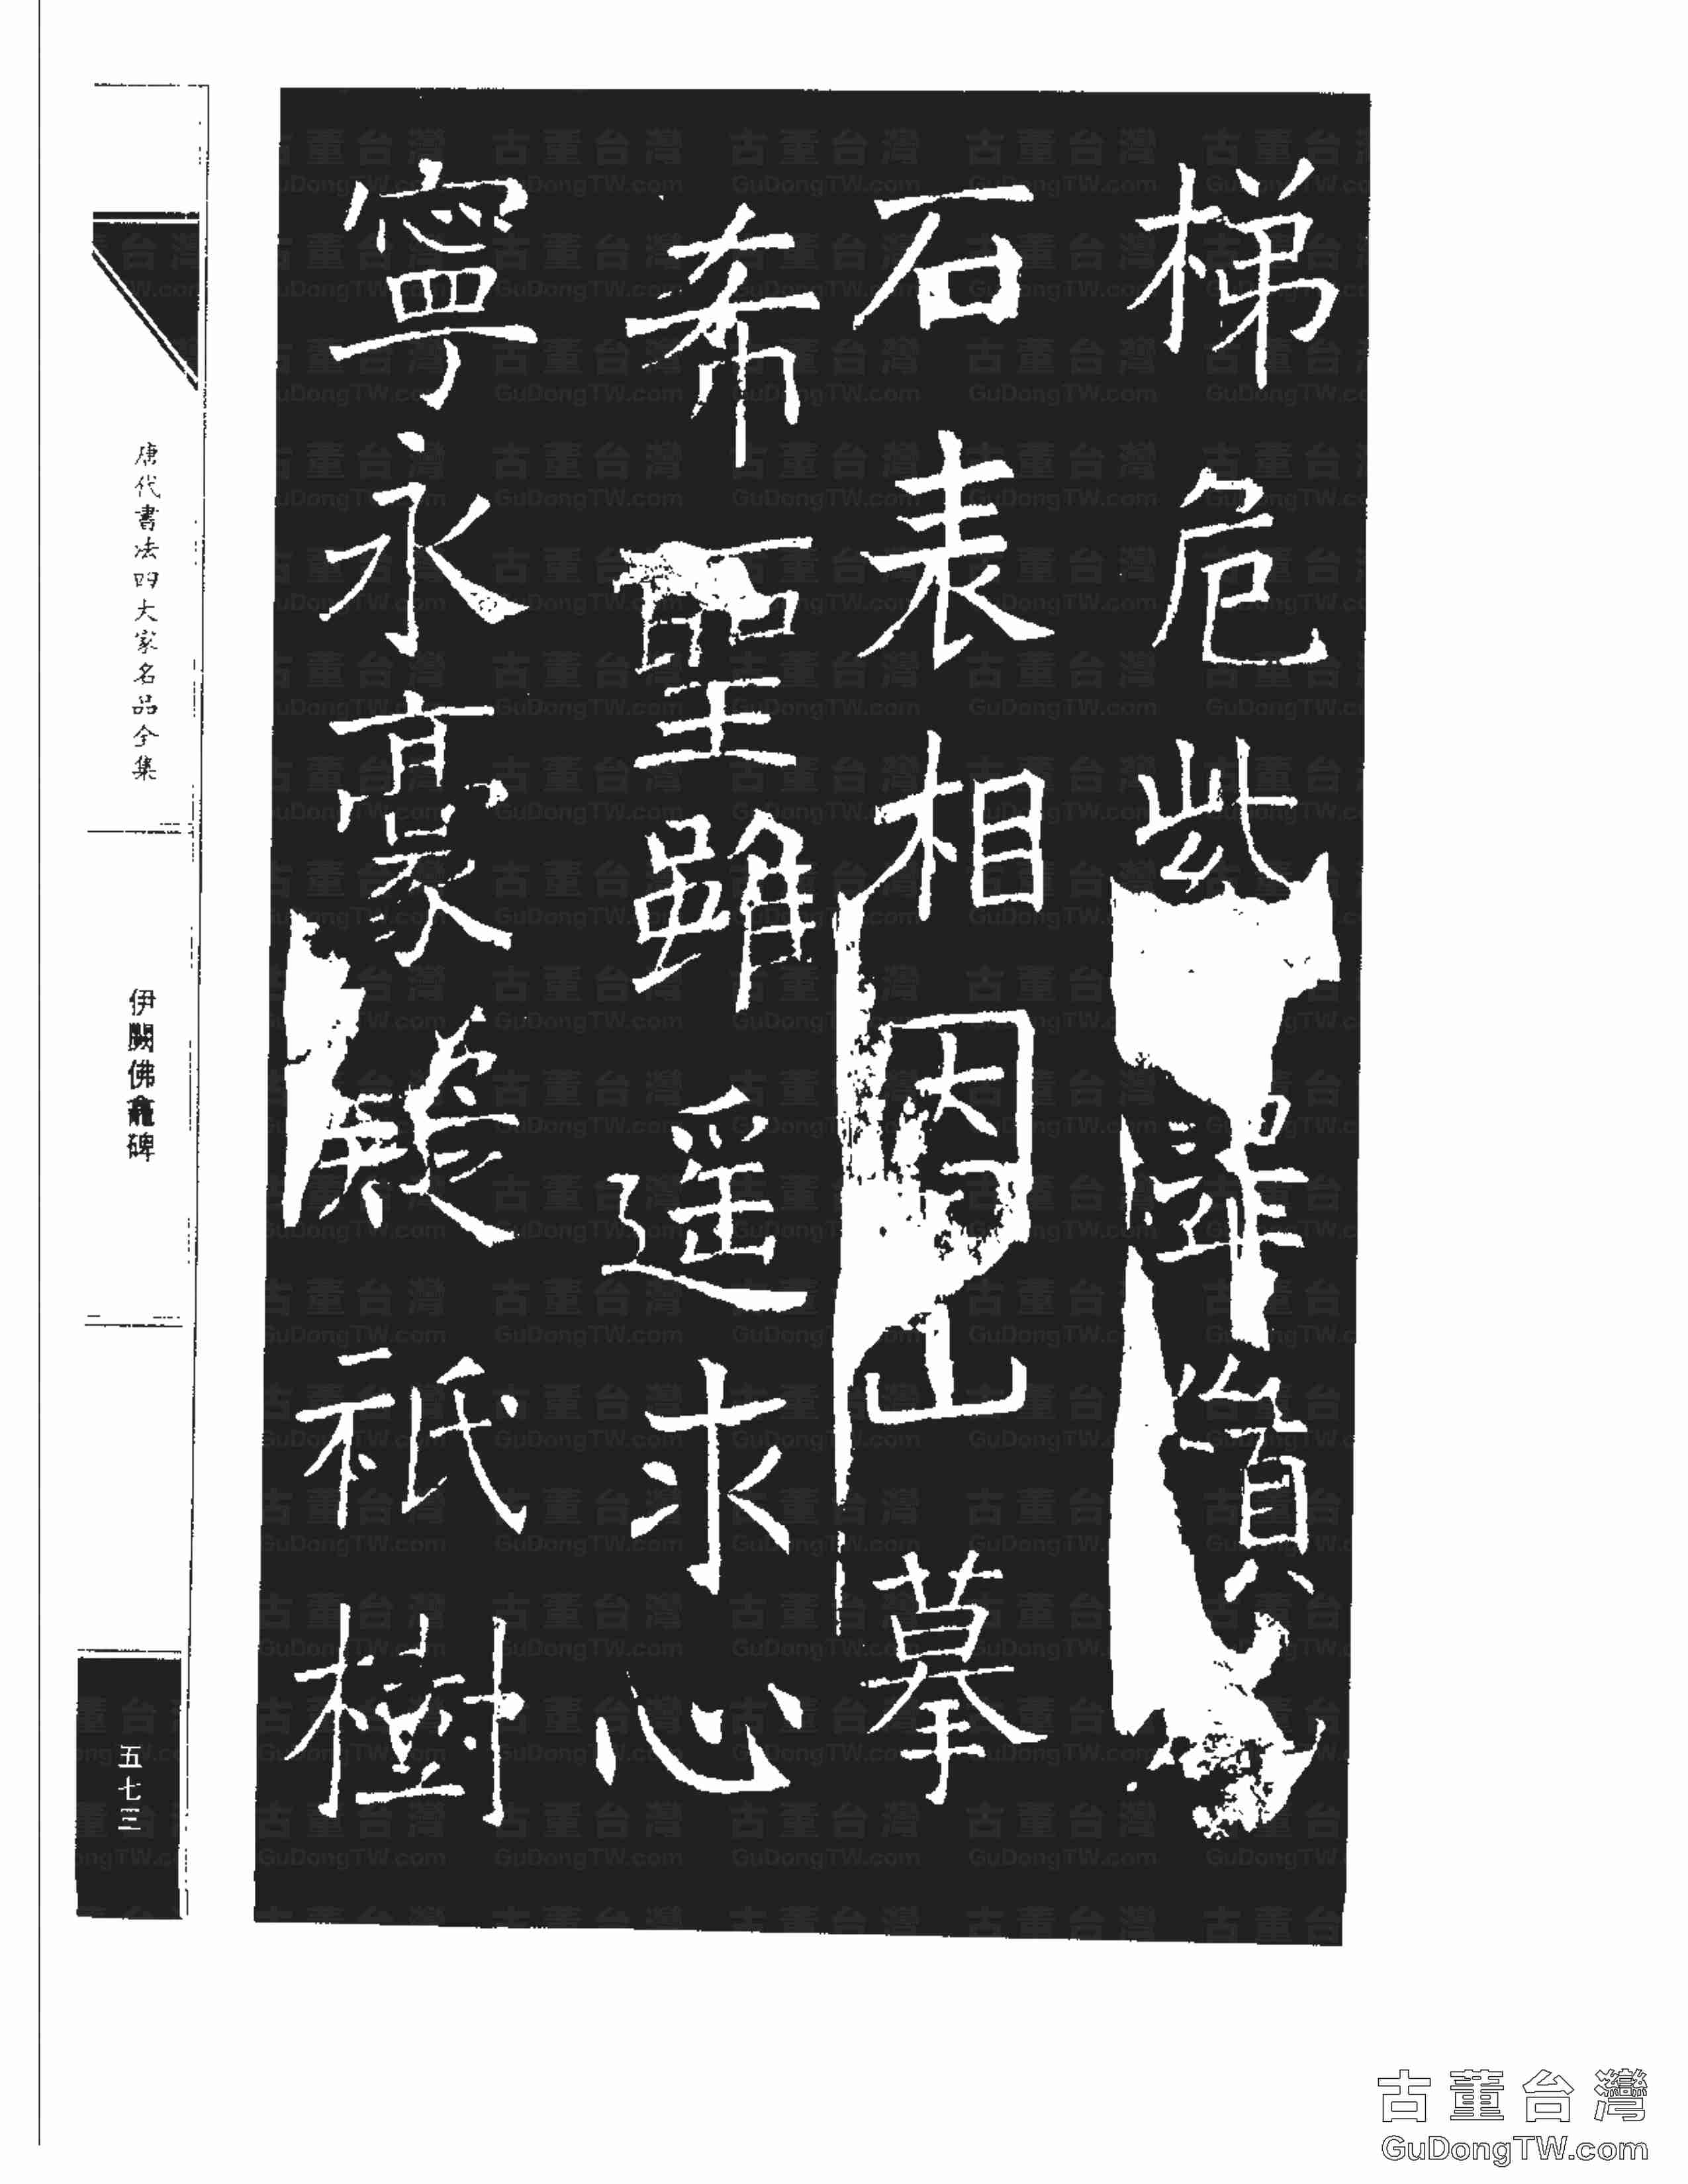 梯危紫
石表相因山摹
希聖雖遥求心
寧永豪疑祇樹
唐代書法四大家名品全集
伊闕佛龕碑
五七三
古董台灣
GuDongTW.com